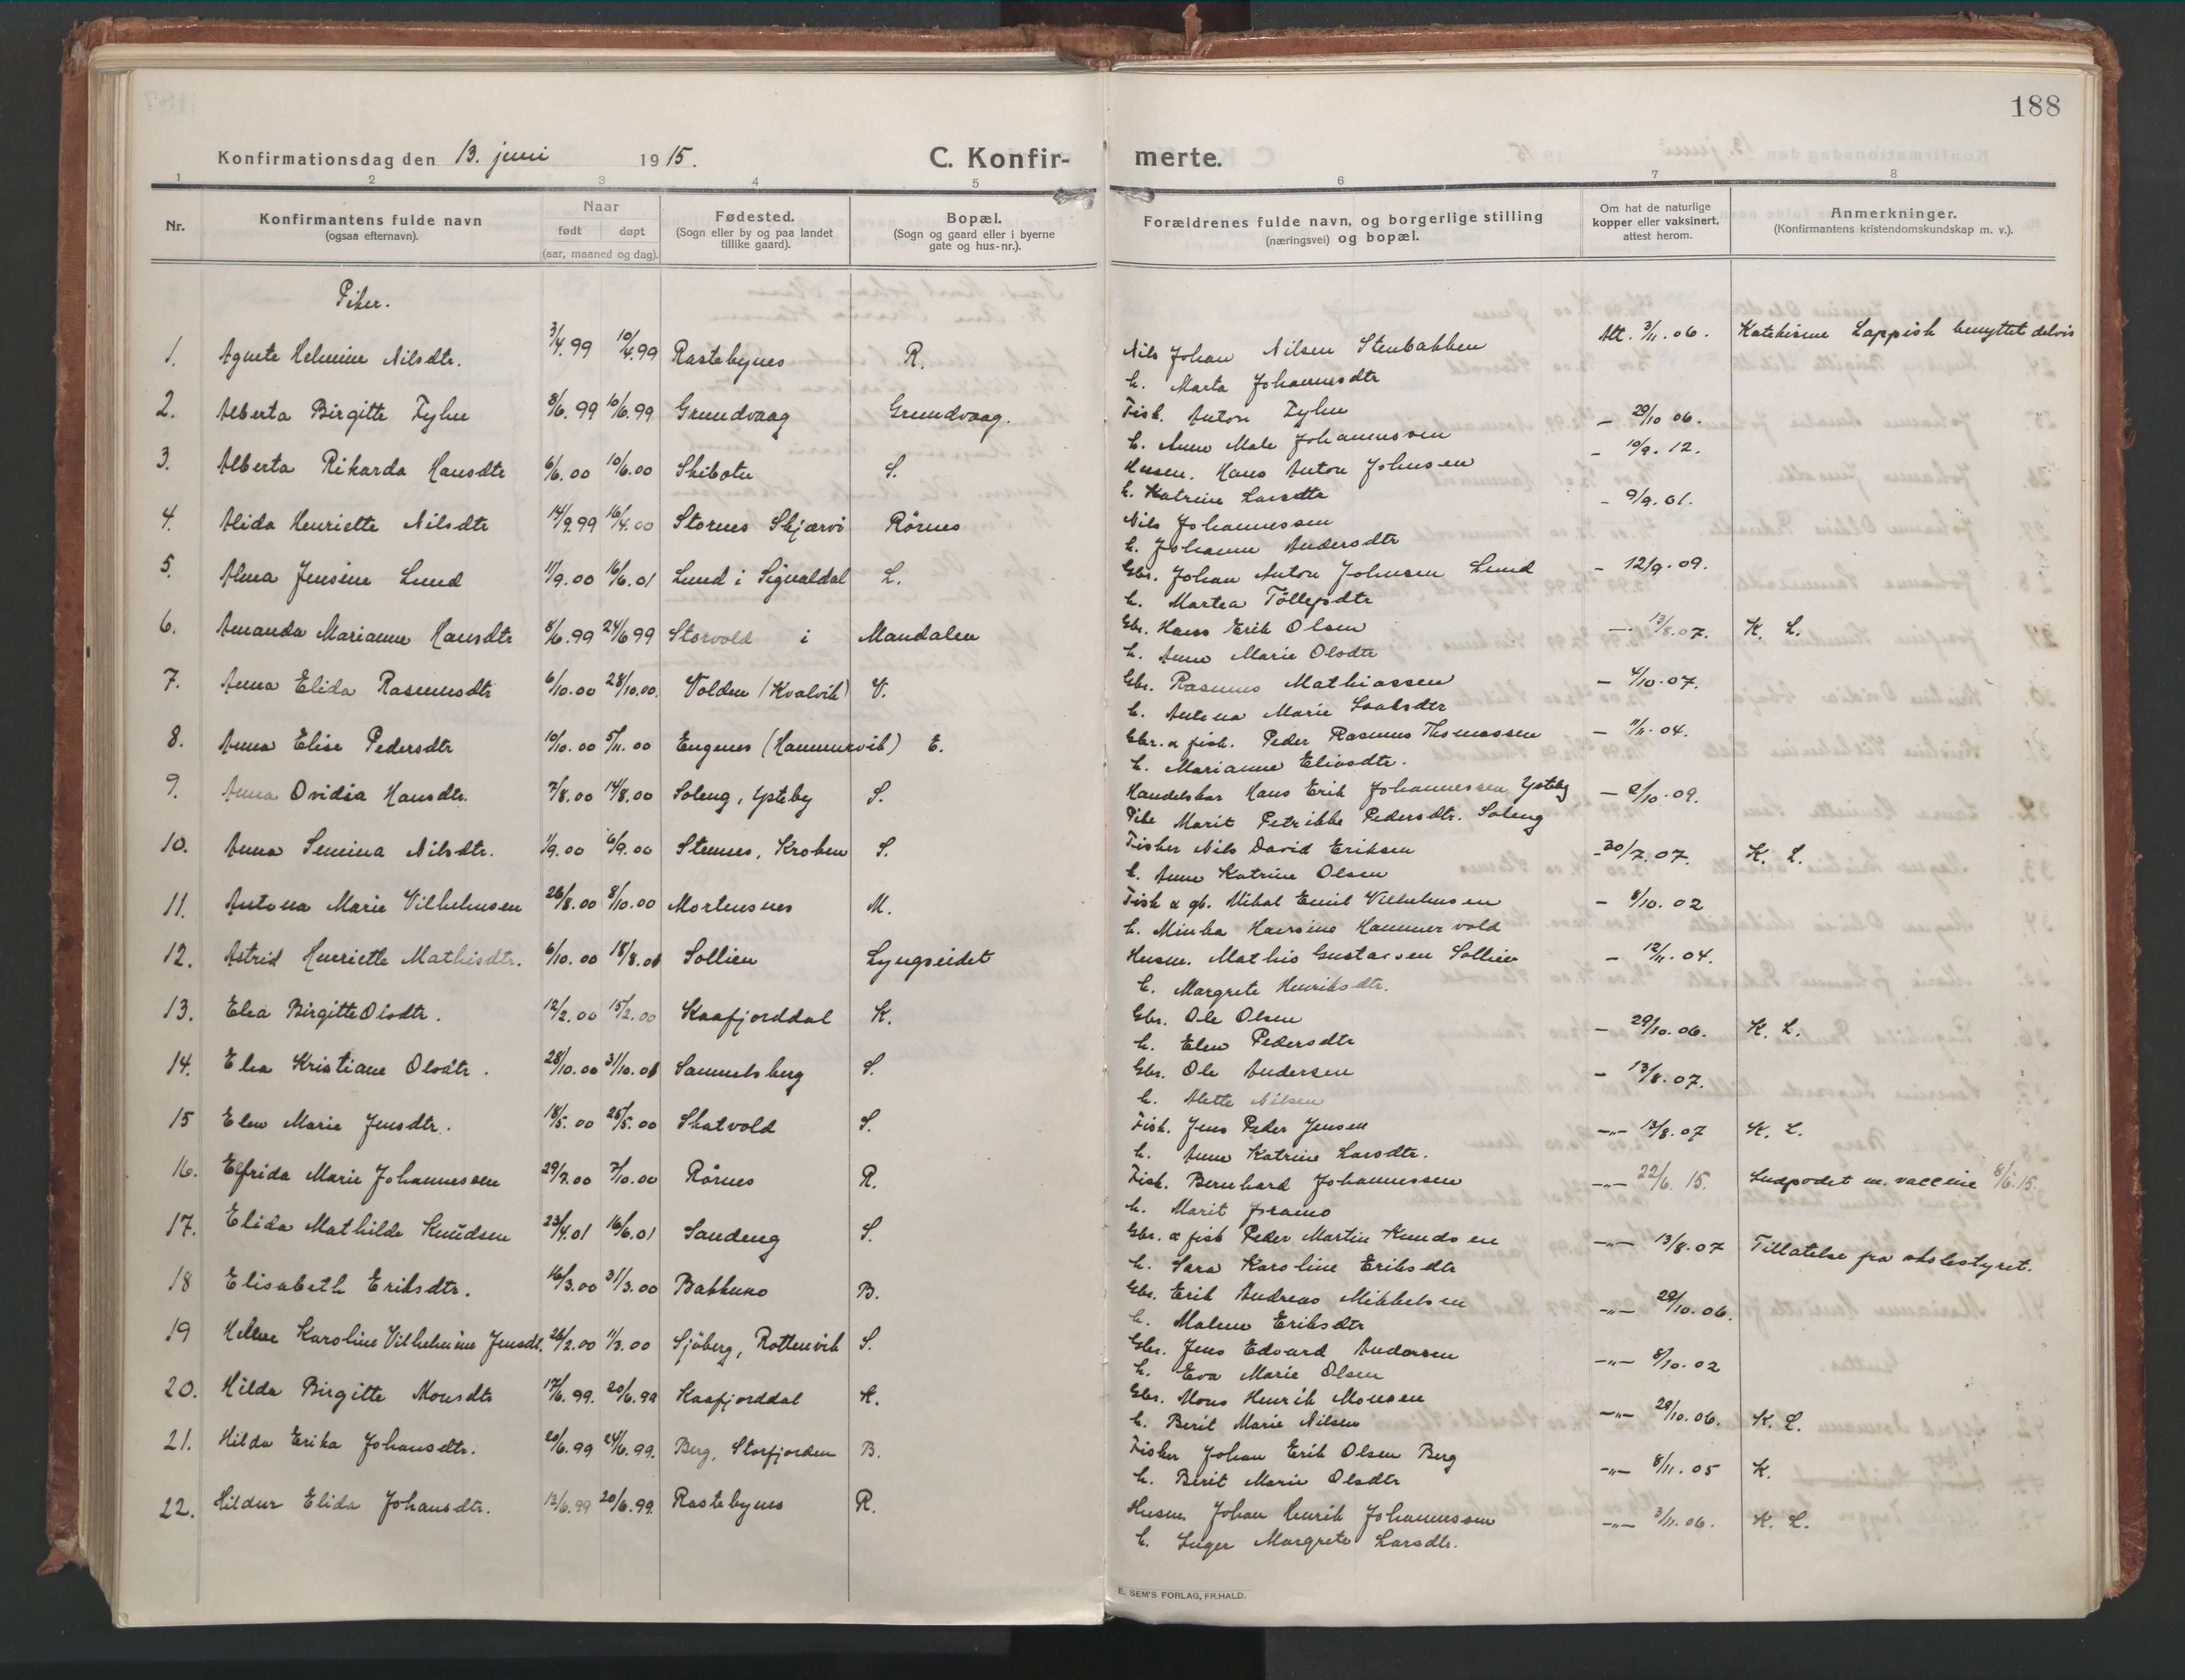 188
Konfirmationsdag den 13. juni 1915. C. Konfir- merte.
1 2 3 4 5 6 7 8
Nr. Konfirmantens fulde navn (ogsaa efternavn). Naar født døpt (aar, maaned og dag). Fødested. (Sogn eller by og paa landet tillike gaard). Bopæl. (Sogn og gaard eller i byerne gate og hus-nr.). Forældrenes fulde navn, og borgerlige stilling (næringsvei) og bopæl. Om hat de naturlige kopper eller vaksinert, attest herom. Anmerkninger. (Konfirmantens kristendomskundskap m. v.).
Piker.
1. Agnete Helmine Nilsdtr. 3/4.99 10/4.99 Rastebynes R. Nils Johan Nilsen Stenbakken Att. 3/11.06. Katekisme Lappisk benyttet delvis
h. Marta Johannesdtr
2. Alberta Birgitte Fyhn 8/6.99 10/6.99 Grundvaag Grundvaag. Fisk. Anton Fyhn - 29/10 06.
h. Anne Male Johannessen
3. Alberta Rikarda Hansdtr 6/6.00 10/6.00 Skibotn S. Husm. Hans Anton Johnsen - 10/9.12.
h. Katrine Larsdtr
4. Alida Henriette Nilsdtr 14/9.99 16/4.00 Stornes Skjærvö Rörnes Nils Johannessen - 9/9.01.
h. Johanne Andersdtr
5. Alma Jensine Lund 11/9.00 16/6.01 Lund i Signaldal L. Gbr. Johan Anton Johnsen Lund - 12/9.09.
h. Martea Töllefsdtr
6. Amanda Marianne Hansdtr 8/6.99 24/6 99 Storvold i Mandalen Gbr. Hans Erik Olsen - 13/8.07. K. L.
h. Anne Marie Olsdtr
7. Anna Elida Rasmusdtr 6/10.00 28/10.00. Volden (Kvalvik) V. Gbr. Rasmus Mathiassen - 4/10.07.
h. Antona Marie Isaksdtr
8. Anna Elise Pedersdtr 10/10.00 5/11.00 Engenes (Hammervik) E. Gbr. & fisk. Peder Rasmus Thomassen - 11/11.04.
h. Marianne Eliasdtr.
9. Anna Ovidia Hansdtr. 7/8.00 14/8.00 Soleng, Ysteby S. Handelskar Hans Erik Johannessen Ysteby - 2/10.09.
Pike Marit Petrikke Pedersdtr. Soleng
10. Anna Semina Nilsdtr. 1/9.00 6/9.00 Stennes, Kroken S. Fisker Nils David Eriksen - 30/7.07. K. L.
h. Anne Katrine Olsen
11. Antona Marie Vilhelmsen 26/8.00 8/10.00 Mortensnes M. Fisk & gb. Mikal Emil Vilhelmsen - 8/10.02
h. Minka Hansine Hammervold
12. Astrid Henriette Mathisdtr. 6/10.00 18/8.01 Sollien Lyngseidet Husm. Mathis Gustavsen Sollien - 12/11.04.
h. Margrete Henriksdtr.
13. Elea Birgitte Olsdtr. 12/2.00 15/2.00 Kaafjorddal K. Gbr. Ole Olsen - 29/10.06. K. L.
h. Elen Pedersdtr
14. Elea Kristiane Olsdtr. 28/10.00 31/10.01 Samuelsberg S. Gbr. Ole Andersen - 13/8.07.
h. Alette Nilsen
15 Elen Marie Jensdtr. 18/5.00 25/5.00 Skatvold S. Fisk. Jens Peder Jensen -"- 13/8.07 K. L.
h. Anne Katrine Larsdtr.
16. Elfrida Marie Johannessen 29/7.00 7/10.00 Rörnes R. Fisk. Bernhard Johannessen -"- 22/6 15. Indpodet m. vaccine 8/6.15.
h. Marit
17. Elida Mathilde Knudsen 23/4.01 16/6.01 Sandeng S. Gbr. & fisk Peder Martin Knudsen -"- 13/8.07 Tillatelse fra skolestyret.
h. Sara Karoline Eriksdtr
18 Elisabeth Eriksdtr. 16/3.00 31/3.00 Bakkeno B. Gbr. Erik Andreas Mikkelsen -"- 29/10.06.
h. Malene Eriksdtr
19 Helene Karoline Vilhelmine Jensdtr. 26/2.00 11/3.00 Sjöberg, Rottenvik S. Gbr. Jens Edvard Andersen -"- 8/10.02
h. Eva Marie Olsen
20. Hilda Birgitte Monsdtr 17/6.99. 20/6.99 Kaafjorddal K. Gbr. Mons Henrik Monsen -"- 29/10.06. K. L.
h. Berit Marie Nilsen
21. Hilda Erika Johansdtr. 20/6.99 24/6.99. Berg, Storfjorden B. Fisker Johan Erik Olsen Berg -"- 8/11.05 K.
h. Berit Marie Olsdtr
22. Hildur Elida Johansdtr. 12/6.99 20/6.99. Rastebynes R. Husm. Johan Henrik Johannessen -"- 3/11.06. K. L.
h. Inger Margrete Larsdtr.
E. SEM'S FORLAG, FR.HALD.